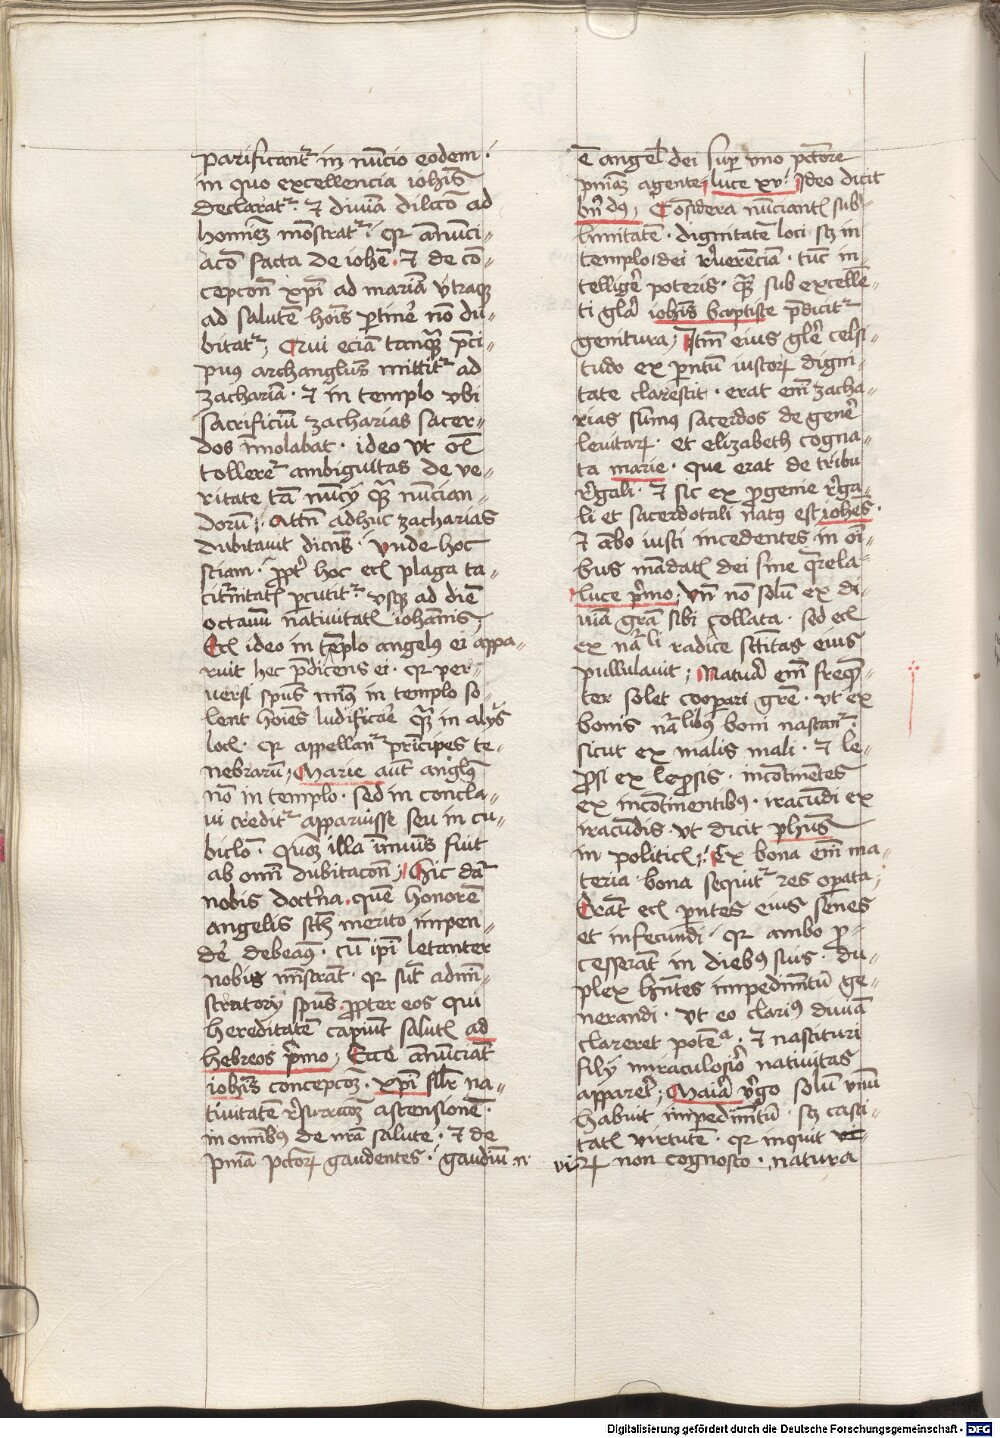 parificantr in nuncio eodem ·
in quo excellencia iohis
declaratr · Et diuina dilcco ad
hominez monstratr · qr annuci=
aco facta de iohe · Et de con=
cepcone xpi ad mariam vtraqz
ad salute hois ptine no du=
bitatr · Qui ecia tanqz pnci=
puus archanglus mittitr ad
zacharia · Et in templo vbi
sacrificiu zacharias sacer=
dos immolabat · ideo vt ois
tolleretr ambiguitas de ve=
ritate tam nuncij qz nuncian=
dorum · Attn adhuc zacharias
dubitauit dicens · vnde hoc
sciam · ppt hoc eci plaga ta=
citurnitatis pcutitr · vsqz ad die
octauu natiuitatis iohannis
Eci ideo in templo angelus ei appa=
ruit hec pdicens ei · qr per=
uersi spus minus in templo so=
lent hoies ludificare qz in alijs
locis · qr appellantr principes te=
nebraru · Marie aut anglus
no in templo · sed in concla=
ui creditr apparuisse seu in cu=
biclo · quoniaz illa immunis fuit
ab omni dubitacone · Hic datr
nobis doctrina · que honore
angelis sctis merito impen=
de debeamus · cu ipi letanter
nobis ministrant · qr sut admini=
stratorij spus · ppter eos qui
hereditate capiunt salutis ad
hebreos pmo · Ecce annunciat
iohis concepcoz · xpi silr na=
tiuitate resurreccoz ascensione ·
in omnibus de nra salute · Et de
pnia pctorz gaudentes · gaudiu n
e angelis dei sup vno pctore
pniaz agente luce xv · Ideo dicit
bn dus · Considera nunciantis sub=
limitate · dignitate loci · sz in
templo dei reuerencia · tuc in=
tellige poteris · qz sub excelle=
ti gla iohis baptiste pdicitr
genitura · Itm eius glie celsi=
tudo ex pntum iustorz digni=
tate clarescit · erat em zacha=
rias sumus sacerdos de gene
leuitarz · et elizabeth cogna=
ta marie · que erat de tribu
regali · Et sic ex pgenie rega=
li et sacerdotali natus est iohes ·
Et ambo iusti incedentes in oi=
bus mandatis dei sine qrela
luce pmo · vn no solu ex di=
uina gra sibi collata · sed eci
ex nali radice sctitas eius
pullulauit · Natura em freqn=
ter solet coopari gre · vt ex
bonis nalibus boni nascantr ·
sicut ex malis mali · Et le=
psi ex lepsis · incotinetes
ex incotinentibus · iracudi ex
iracudis · vt dicit phus
in politicis · Ex bona em ma=
teria bona sequitr res opata ·
Erat eci pntes eius senes
et infecundi · qr ambo p=
cesserat in diebus suis · du=
plex hntes impedimtu ge=
nerandi · vt eo clarius diuina
clareret potena · Et nascituri
filij miraculosior natiuitas
appareret · Maria vgo solu vnu
habuit impedimtu · sz casti=
tatis virtute · qr inquit vi
virz non cognosco · natura
Digitalisierung gefördert durch die Deutsche Forschungsgemeinschaft · DFG